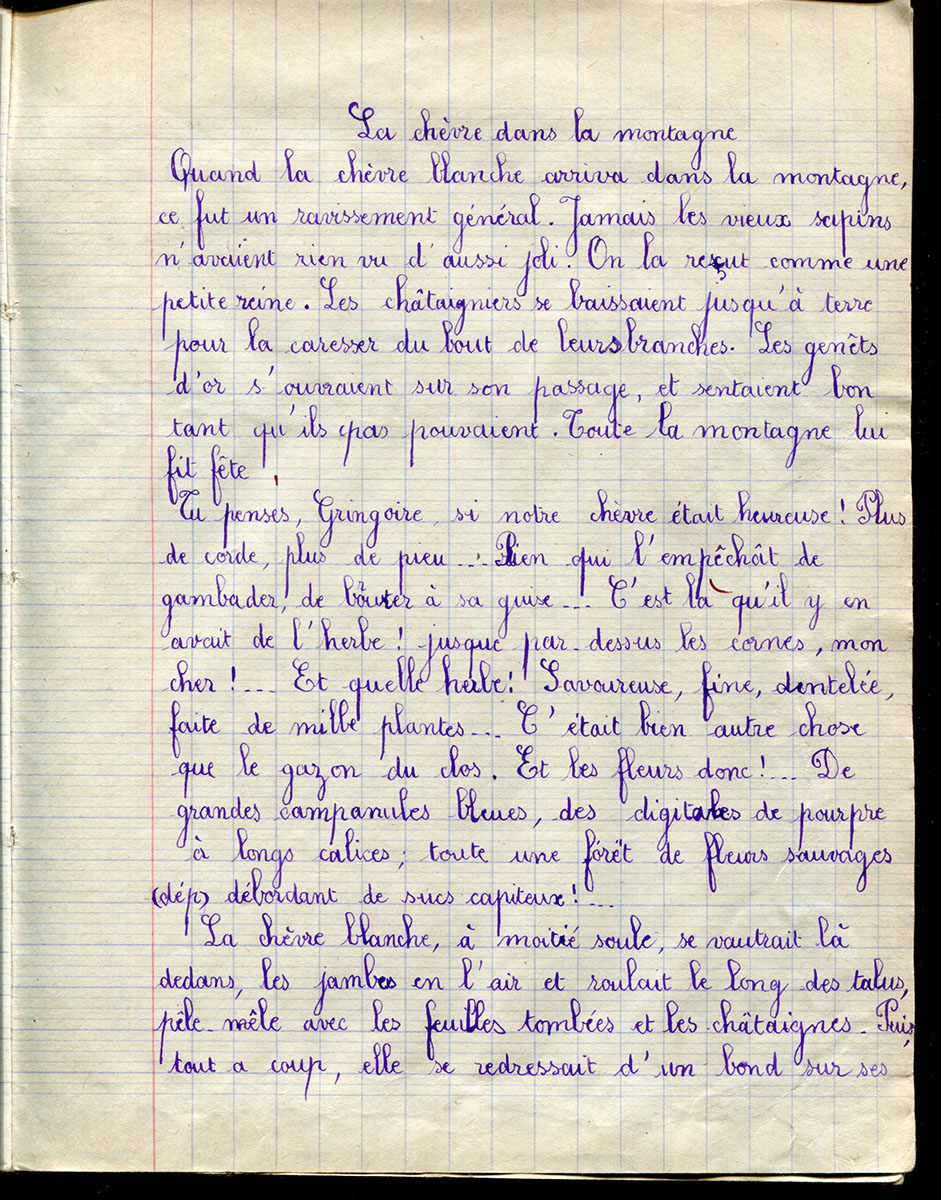 La chèvre dans la montagne
Quand la chèvre blanche arriva dans la montagne,
ce fut un ravissement général. Jamais les vieux sapins
n'avaient rien vu d'aussi joli. On la reçut comme une
petite reine. Les châtaigniers se baissaient jusqu'à terre
pour la caresser du bout de leurs branches. Les genêts
d'or s'ouvraient sur son passage, et sentaient bon
tant qu'ils pouvaient. Toute la montagne lui
fit fête
Tu penses, Gringoire, si notre chèvre était heureuse ! Plus
de corde, plus de pieu ... Rien qui l'empêchât de
gambader, de brouter à sa guise ... C'est là qu'il y en
avait de l'herbe ! jusque par-dessus les cornes, mon
cher ! ... Et quelle herbe ! Savoureuse, fine, dentelée,
faite de mille plantes ... C'était bien autre chose
que le gazon du clos. Et les fleurs donc ! ... De
grandes campanules bleues, des digitales de pourpre
à longs calices, toute une forêt de fleurs sauvages
(dép) débordant de sucs capiteux ! ...
La chèvre blanche, à moitié soule, se vautrait là
dedans, les jambes en l'air et roulait le long des talus,
pêle-mêle avec les feuilles tombées et les châtaignes. Puis,
tout a coup, elle se redressait d'un bond sur ses